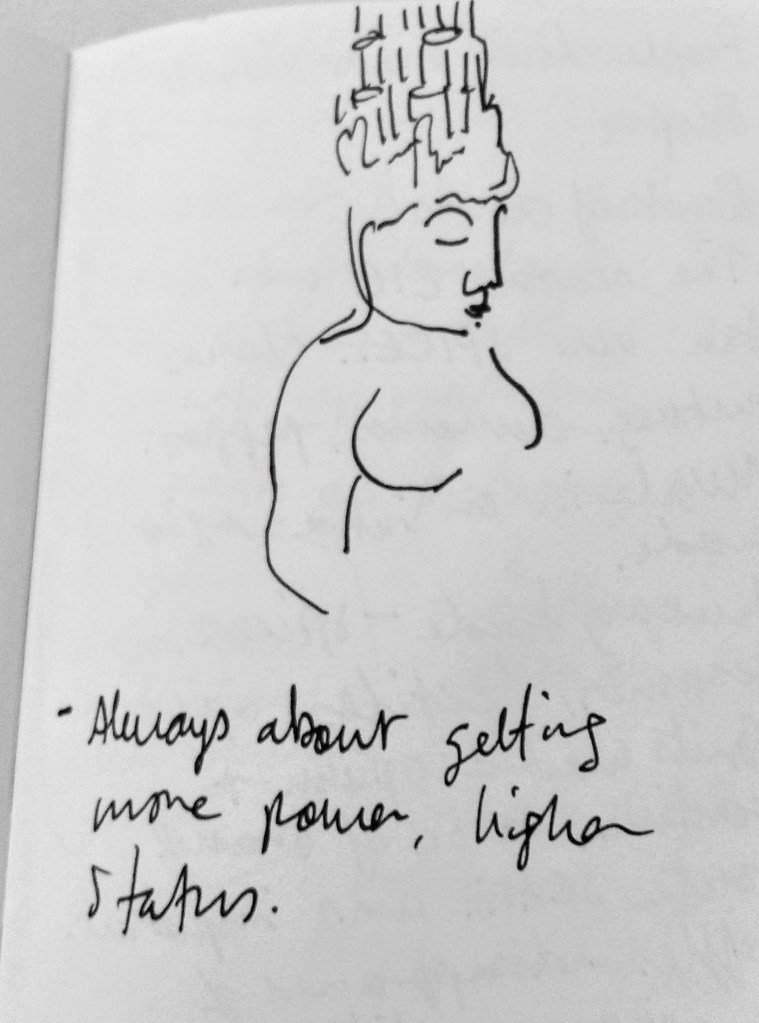 - Always about getting
more power, higher
status.